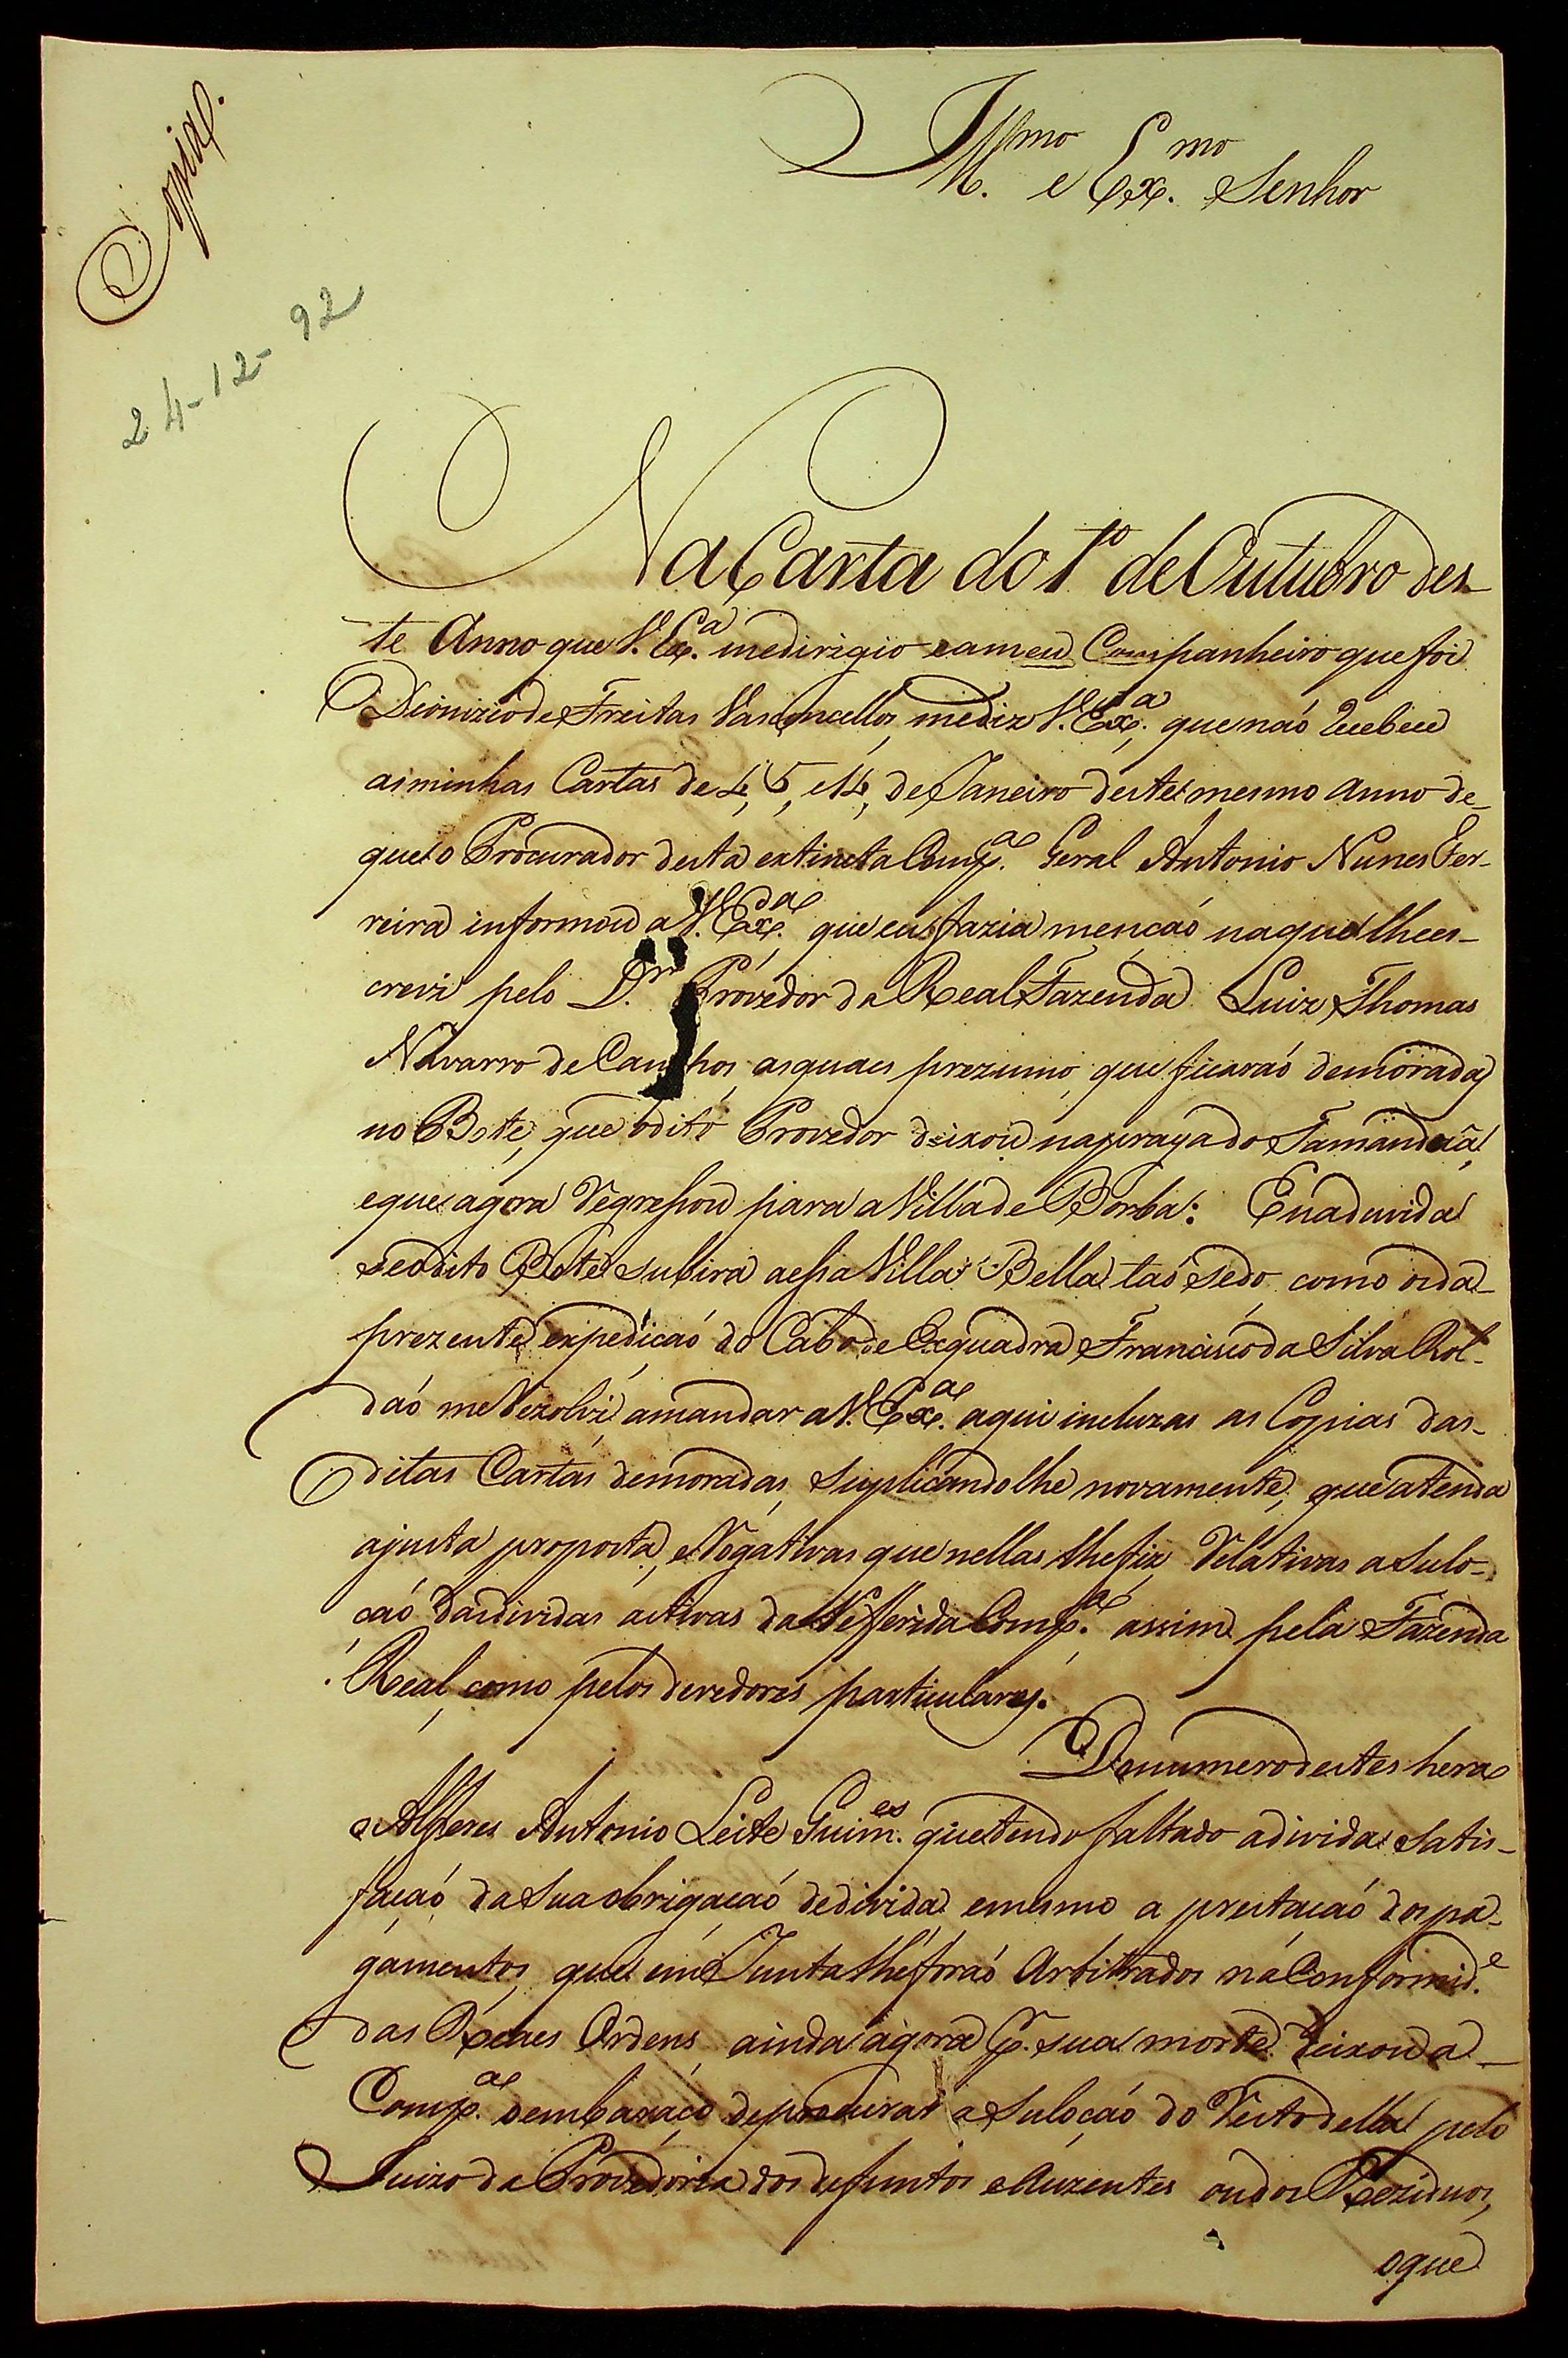 Copia.
24-12-92
Ill.mo e Ex.mo Senhor
Na Carta do 1.º de Outubro des-
te Anno que V. Ex.a me dirigio e a meu Companheiro que foi
Dionizio de Freitas Vasconcellos, me diz V. Ex.a, que naó recebeu
as minhas Cartas de 4, 5, e 14, de Janeiro deste mesmo anno de-
que o Procurador desta extincta Comp.a Geral Antonio Nunes Fer-
reira informou a V. Ex.a que eu fazia mençaó na que lhe es-
crevi pelo D.r Provedor da Real Fazenda Luiz Thomas
Navarro de Campos, as quaes prezumo, que ficaraó demoradas
no Bote, que o dito Provedor deixou na praya do Tamanduâ,
e que agora regressou para a Villa de Borba: E na duvida
se o dito Bote subirá a essa Villa Bella taó sedo como o da
prezente expediçaó do Cabo de Exquadra Francisco da Silva Rol-
daó me rezolvi a mandar a V. Ex.a aqui incluzas as Copias das-
ditas Cartas demoradas, Suplicandolhe novamente, que atenda
a justa proposta, e rogativas que nellas lhe fiz, relativas a Sulo-
çaó das dividas activas da refferida Comp.a assim pela Fazenda
Real, como pelos devedores particulares.
Do numero destes hera
o Alferes Antonio Leite Guim.es que tendo faltado a divida satis-
façaó da sua obrigaçaó de divida, e mesmo a prestaçaó dos pa-
gamentos, que em Junta lhe foraó Arbitrados na Conformid.e
das Reaes Ordens, ainda agora p.r sua morte deixou a
Comp.a o embaraço de procurar a Suloçaó do resto della pelo
Juizo da Provedoria dos defuntos e Auzentes ou dos Reziduos,
o que